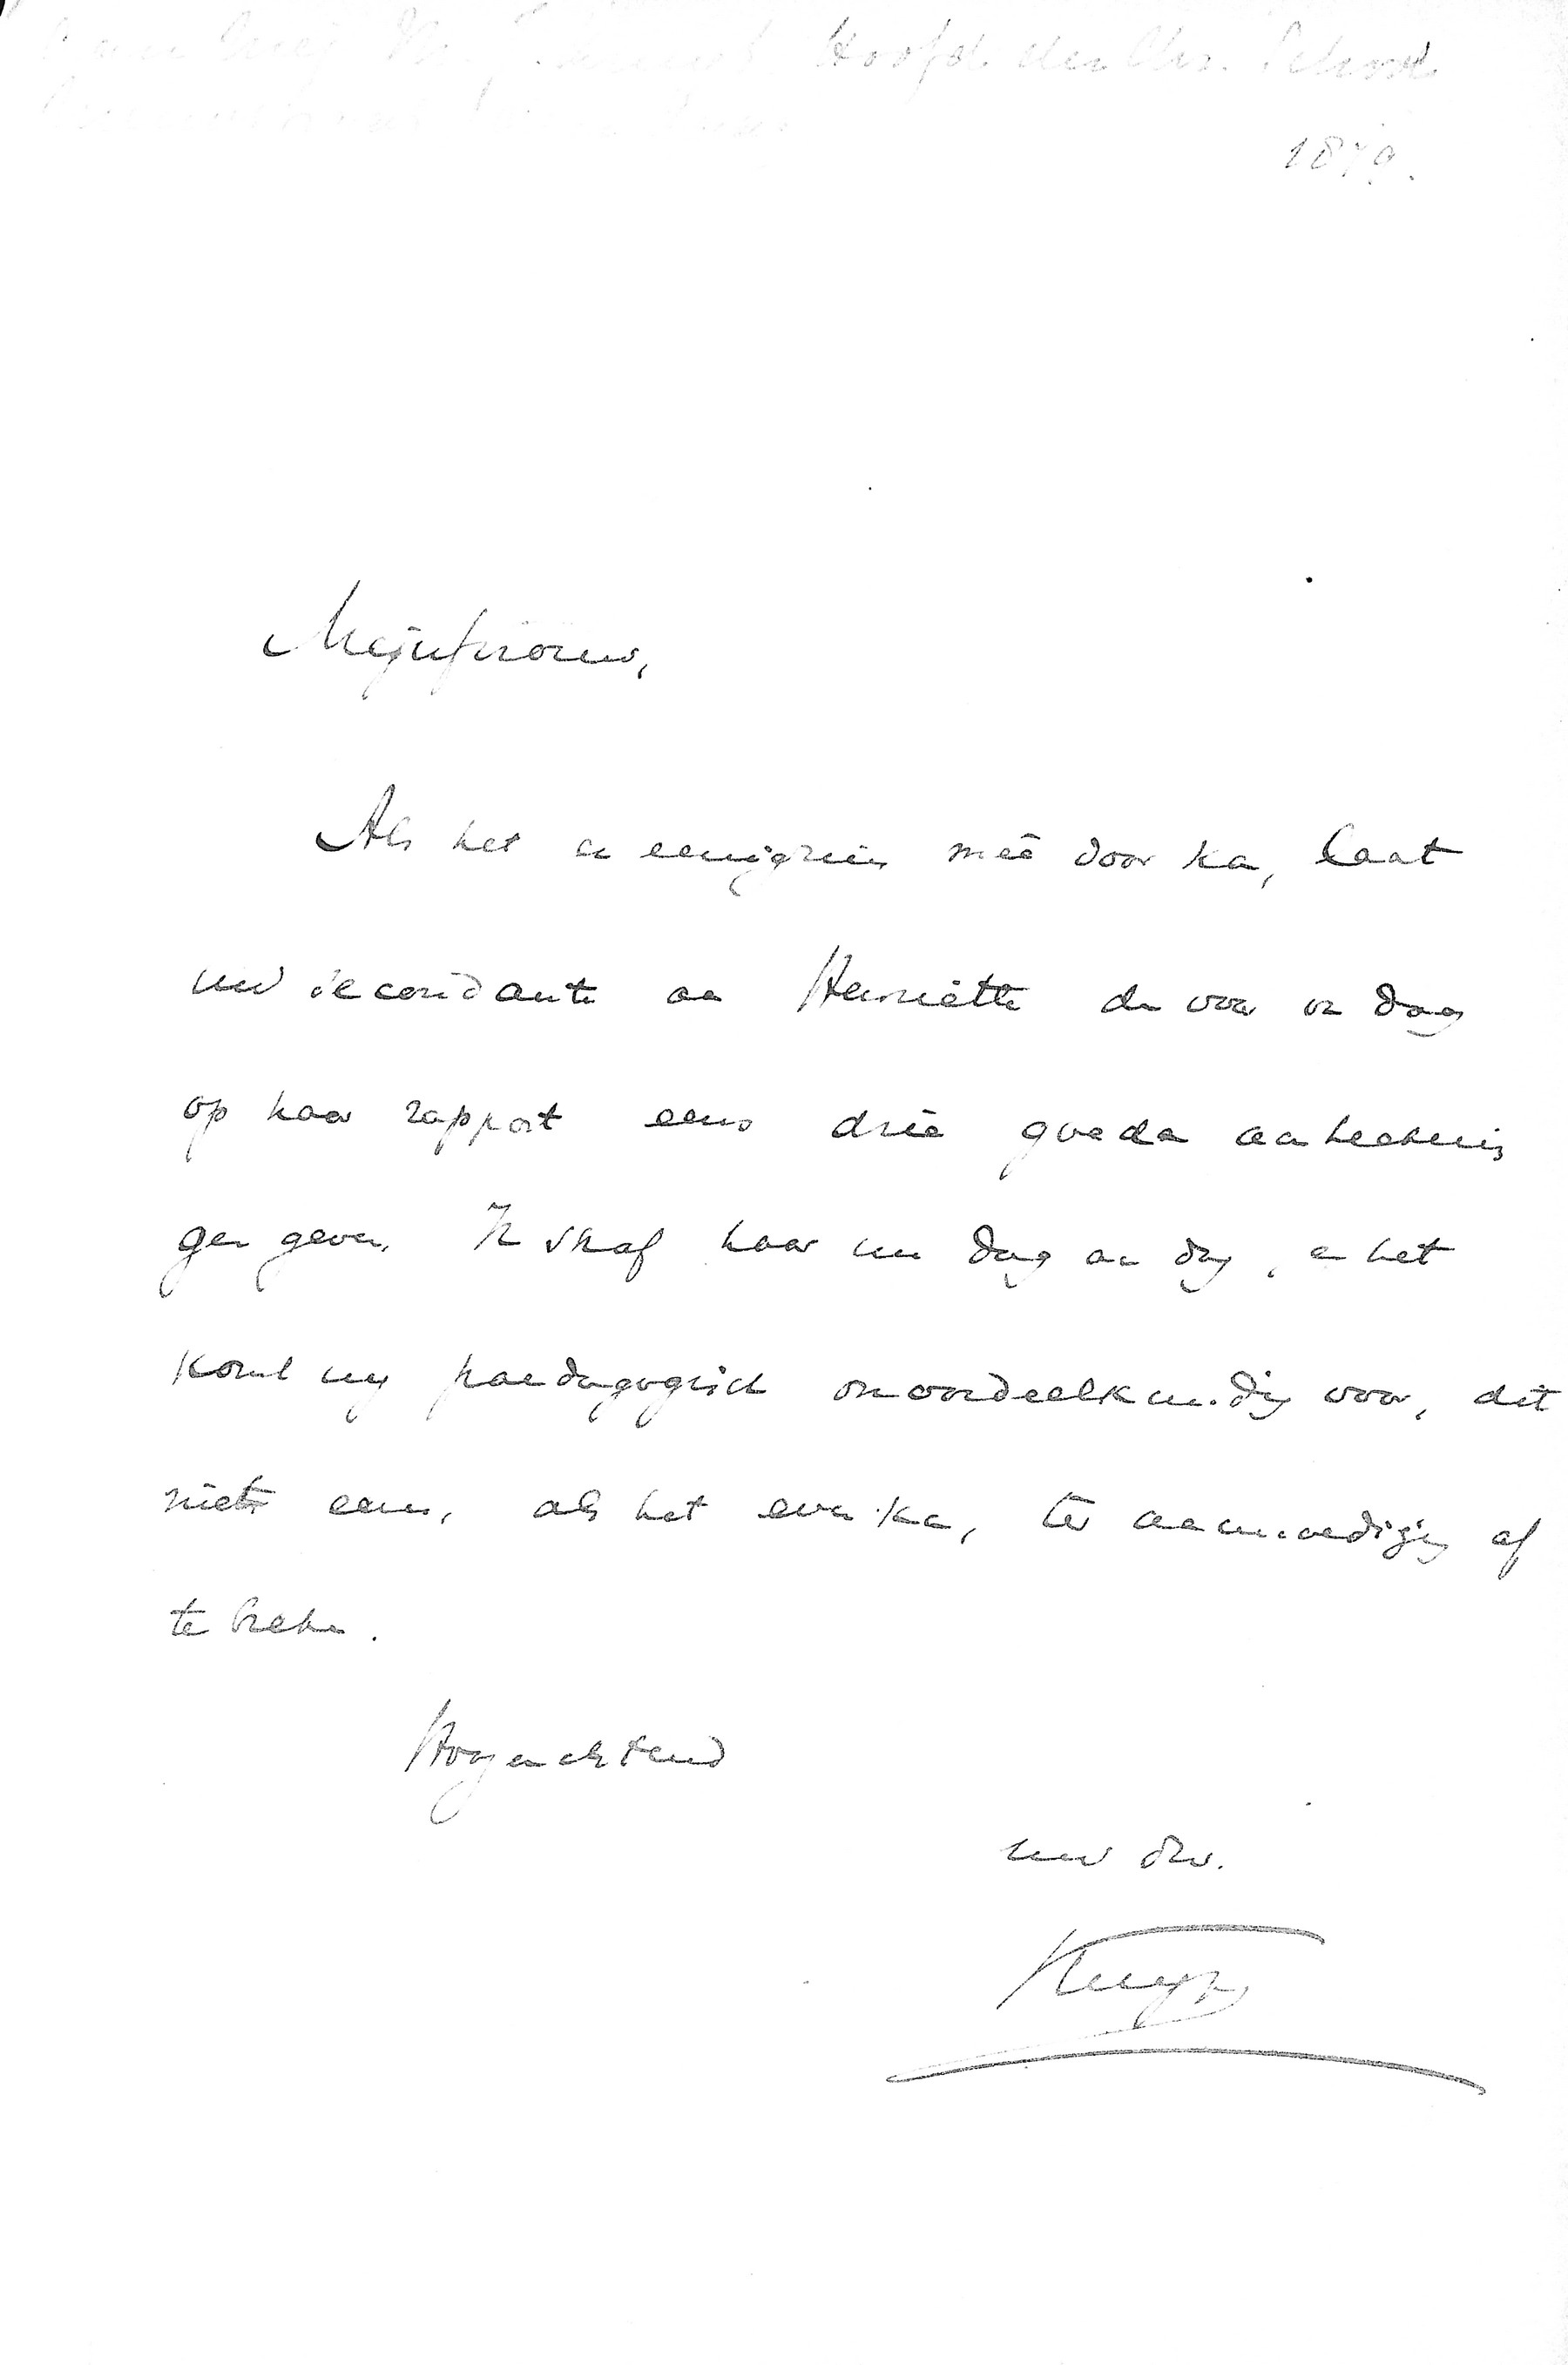 Hoofd der Chr. School
1879.
Mejufrouw,
Als het er eenigzins meê door kan, laat
uw secondante aan Henriëtte dan voor van daag
op haar rapport eens drie goede aanteekenin
gen geven. Ik straf haar nu dag aan dag, en het
komt mij paedagogisch onoordeelkundig voor, dit
niet eens, als het even kan, ter aanmoediging af
te breken.
Hoogachtend
uw dw.
Kuyper